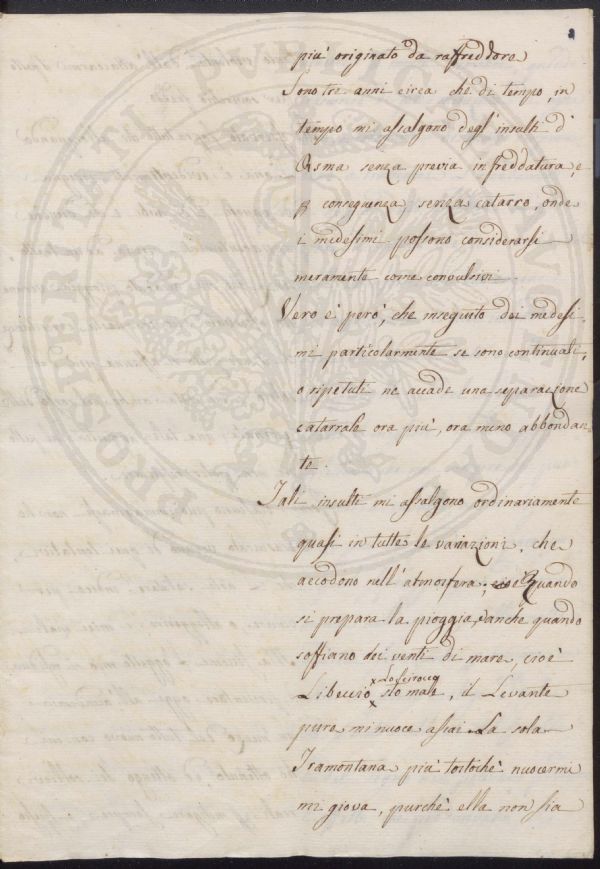 2
più originato da raffreddore
Sono tre anni circa che di tempo, in
tempo mi assalgono degl'insulti d'
Asma senza previa infreddatura, e
p conseguenza senza catarro, onde
i medesimi possono considerarsi
meramente come convulsivi.
Vero è però, che inseguito dei medesi-
mi particolarmente se sono continuati,
o ripetuti ne accade una separazione
catarrale ora più, ora meno abbondan-
te.
Tali insulti mi assalgono ordinariamente
quasi in tutte le variazioni, che
accodono nell'atmosfera; cioè Quando
si prepara la pioggia, anche quando
soffiano dei venti di mare, cioè
Lo Scirocco
Libeccio, sto male, il Levante
pure mi nuoce assai. La sola
Tramontana più tostochè nuocermi
mi giova, purchè ella non sia